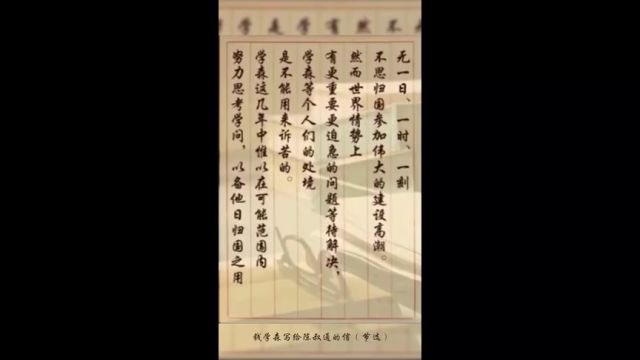 无一日、一时、一刻
不思归国参加伟大的建设高潮。
然而世界情势上
有更重要更迫急的问题等待解决，
学森等个人们的处境
是不能用来诉苦的。
学森这几年中惟以在可能范围内
努力思考学问，以备他日归国之用
钱学森写给陈叔通的信（节选）